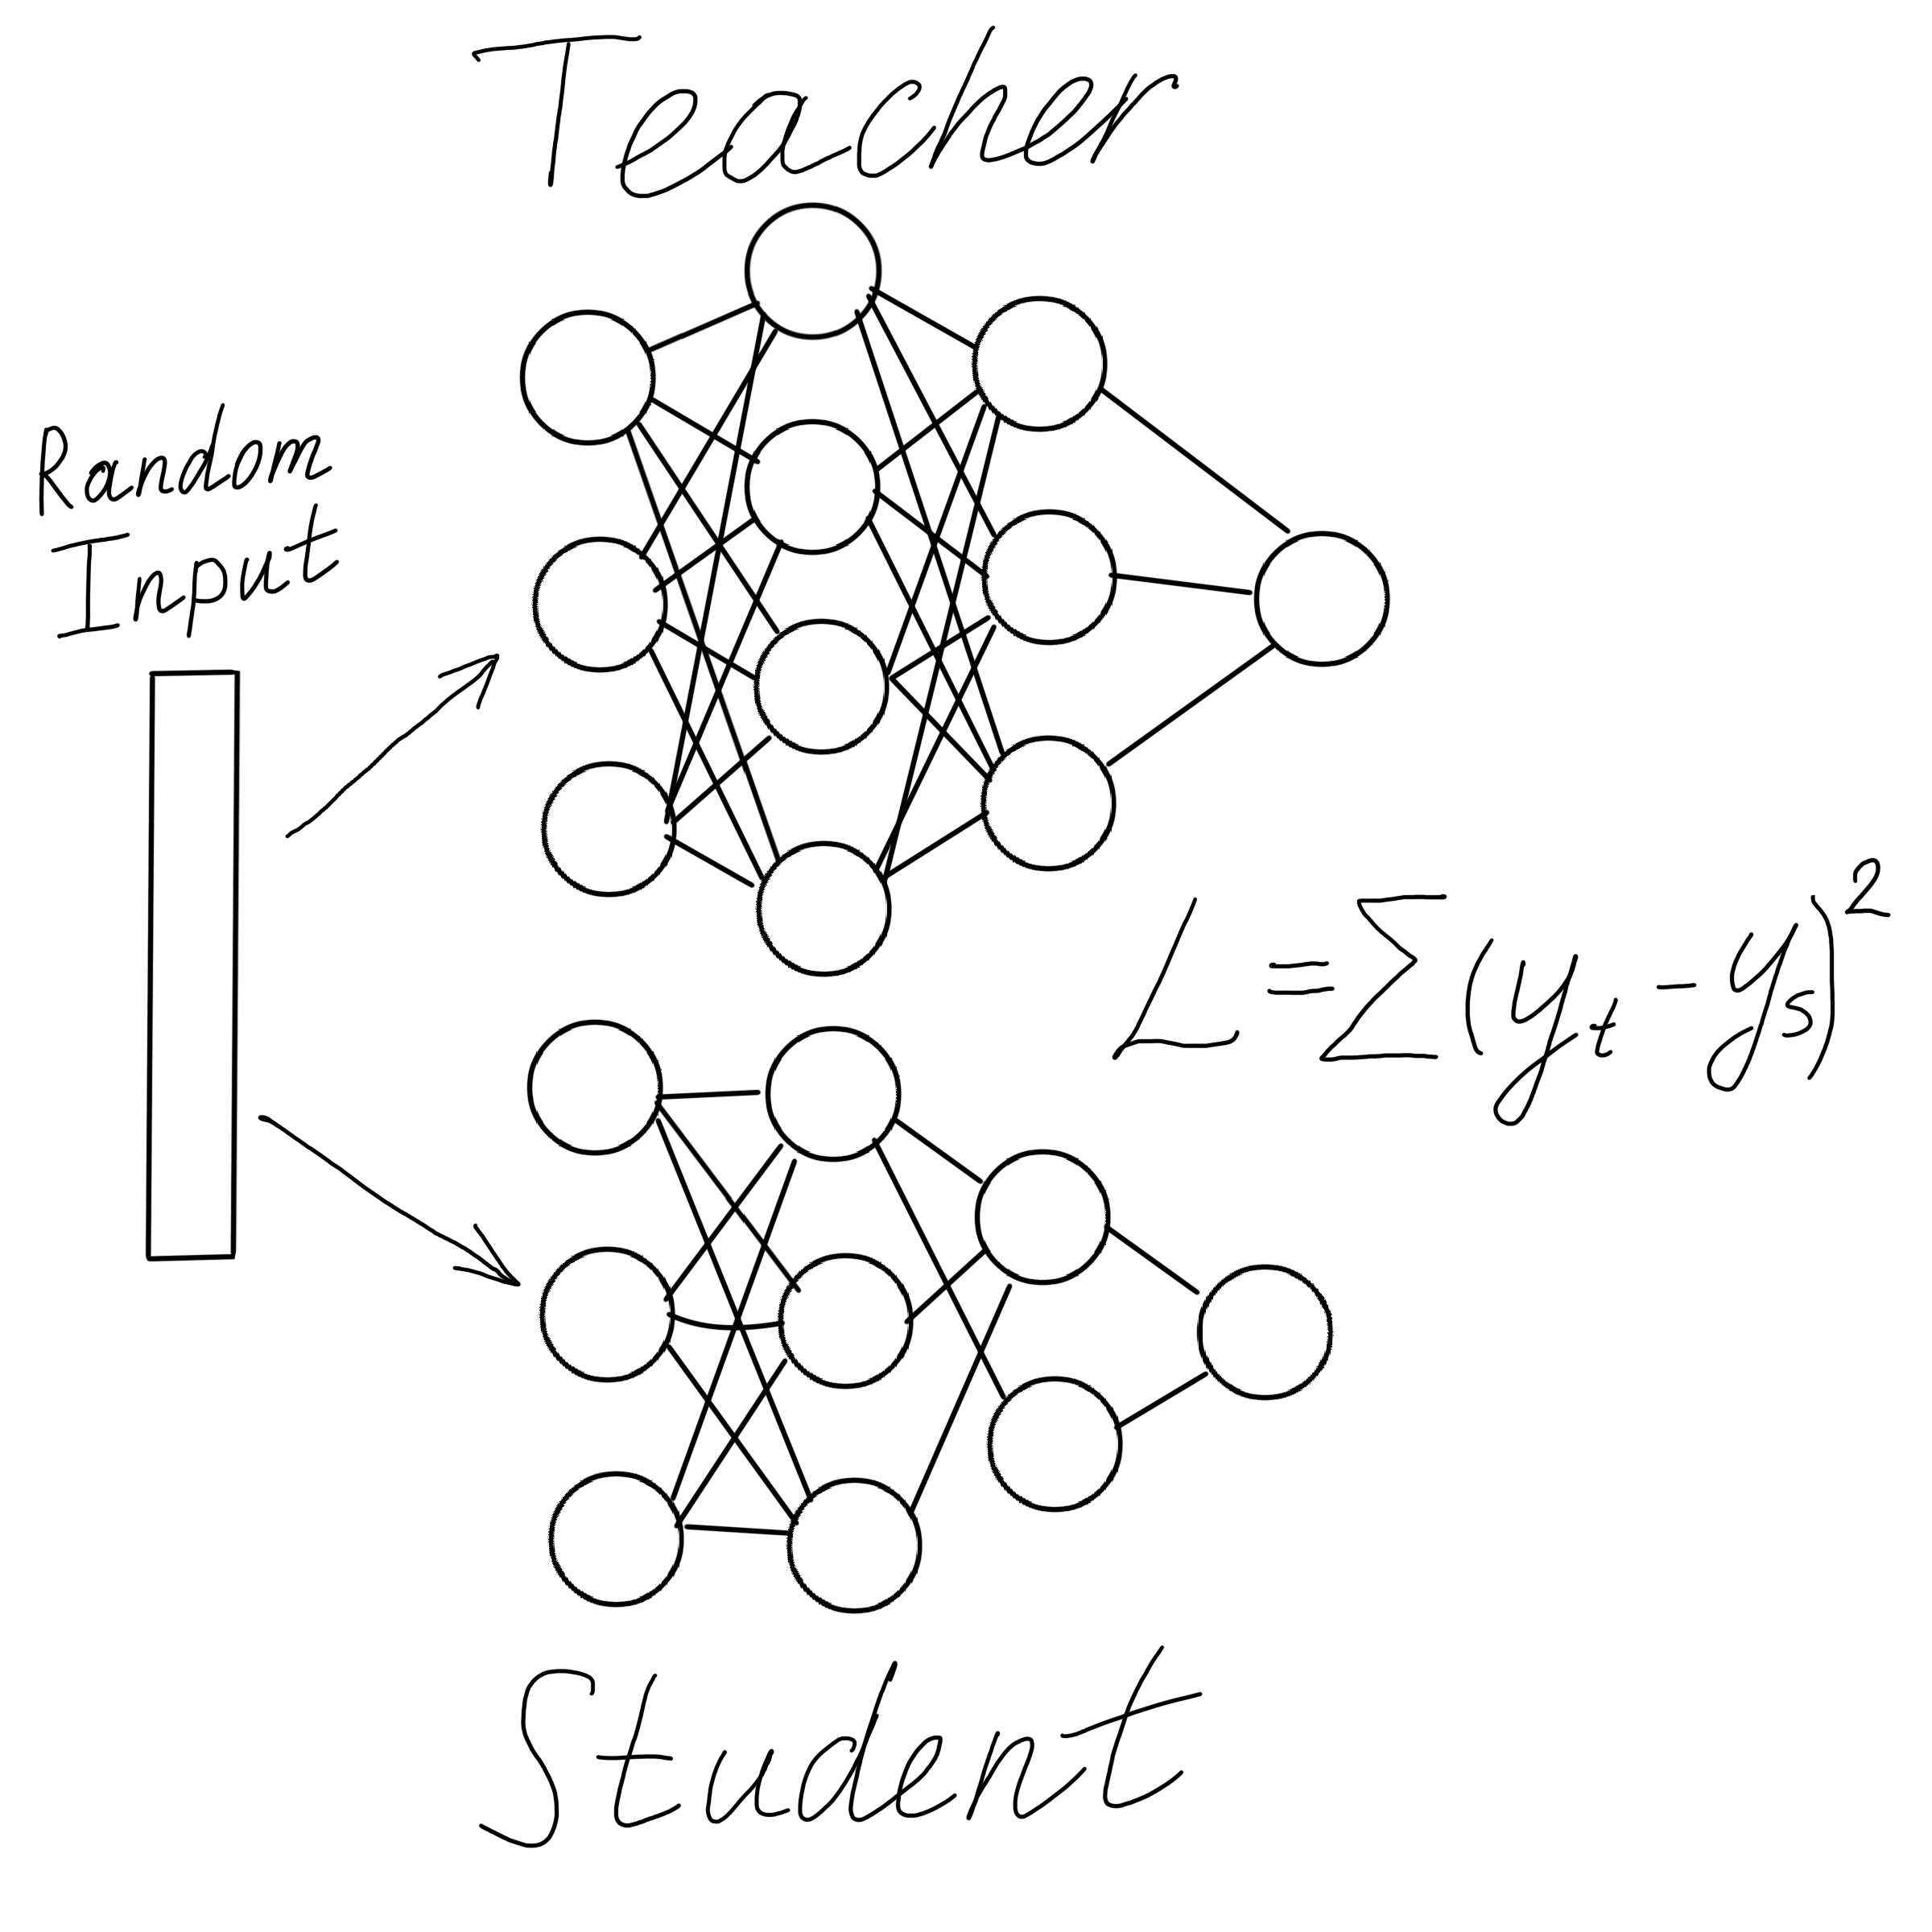 Teacher
Random
Input
L = Σ (y_t - y_s)²
Student